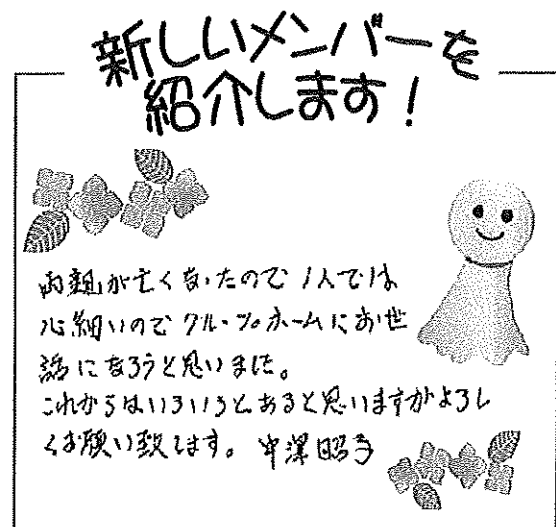 新しいメンバーを
紹介します!
両親が亡くなったので1人では
心細いのでグループホームにお世
話になろうと思いました。
これからはいろいろとあると思いますがよろし
くお願い致します。中澤昭子